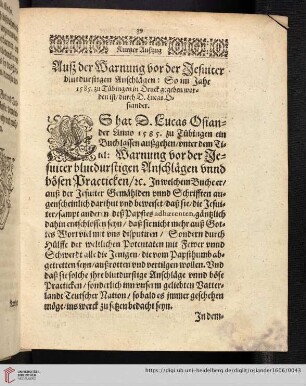 39
Kurtzer Außzug
Auß der Warnung vor der Jesuiter
blutdurstigen Anschlägen: So im Jahr
1585. zu Tübingen in Druck gegeben wor-
den ist/ durch D. Lucas O-
siander.
ES hat D. Lucas Osian-
der Anno 1585. zu Tübingen ein
Buch lassen außgehen/ vnter dem Ti-
tul: Warnung vor der Je-
suiter blutdurstigen Anschlägen vnnd
bösen Practicken/ ꝛc. In welchem Buch er/
auß der Jesuiter Gemählden vnnd Schrifften au-
genscheinlich darthut vnd beweiset/ daß sie/ die Jesui-
ter/ sampt andern deß Papstes adhærenten, gäntzlich
dahin entschlossen seyn/ daß sie nicht mehr auß Got-
tes Wort viel mit vns disputirn/ Sondern durch
Hülffe der weltlichen Potentaten mit Fewer vnnd
Schwerdt alle die Jenigen/ die vom Papsthumb ab-
getretten seyn/ außrotten vnd vertilgen wollen. Vnd
daß sie solche ihre blutdurstige Anschläge vnnd böse
Practicken/ sonderlich im vnserm geliebten Vatter-
landt Teutscher Nation/ sobald es immer geschehen
möge/ ins werck zu setzen bedacht seyn.
In dem-
https://digi.ub.uni-heidelberg.de/diglit/osiander1606/0043